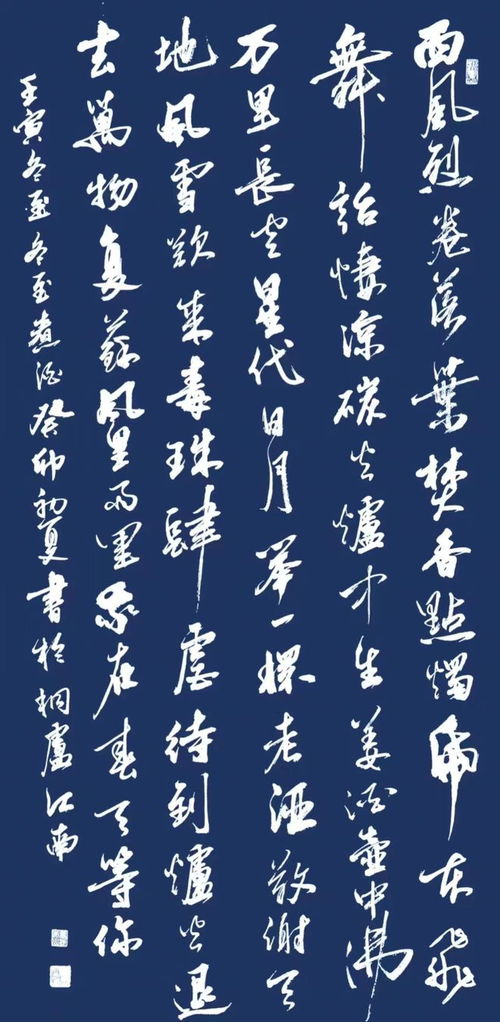 西風烈卷落葉焚香點燭飛
舞話悽涼碳火爐才生姜酒壺中沸
万里長空星代日月举一杯老酒敬谢天
地風雪欲來毒珠肆虐待到爐火退
去萬物复蘇風里雨里我在春天等你
壬寅冬至冬至煮酒癸卯初夏書於桐廬江南